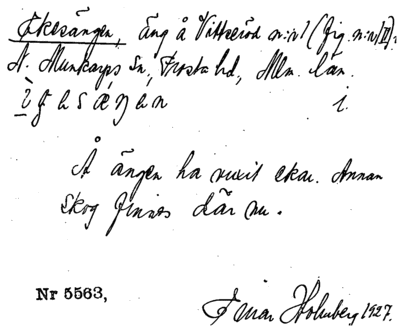 Ekesängen, äng å Vittseröd n:r 1 (fig. n:r
N. Munkarps Sn, Frosta hd, Mlm. län.
i.
Å ängen ha vuxit ekar. Annan
skog finnes där nu.
Nr 5563,
Einar Holmberg 1927.